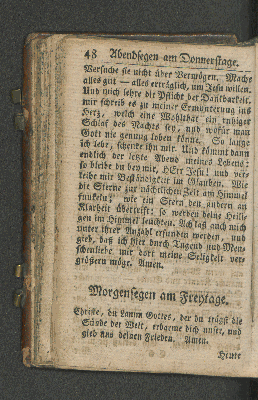 48 Abendsegen am Donnerstage.
Versuche sie nicht über Vermögen. Mache
alles gut — alles erträglich, um Jesu willen.
Und mich lehre die Pflicht der Dankbarkeit.
mir schreib es zu meiner Ermunterung ins
Herz, welch eine Wohlthat ein ruhiger
Schlaf des Nachts sey, und wofür man
Gott nie genung loben könne. So lange
ich lebe, schenke ihn mir. Und kömmt dann
endlich der letzte Abend meines Lebens:
so bleibe du bey mir, HErr Jesu! und ver-
leihe mir Beständigkeit im Glauben. Wie
die Sterne zur nächtlichen Zeit am Himmel
funkeln; wie ein Stern den andern an
Klarheit übertrifft: so werden deine Heili-
gen im Himmel leuchten. Ach laß auch mich
unter ihrer Anzahl erfunden werden, und
gieb, daß ich hier durch Tugend und Men-
schenliebe mir dort meine Seligkeit ver-
größern möge. Amen.
Morgensegen am Freytage.
Christe, du Lamm Gottes, der du trägst die
Sünde der Welt, erbarme dich unser, und
gieb uns deinen Frieden. Amen.
Heute